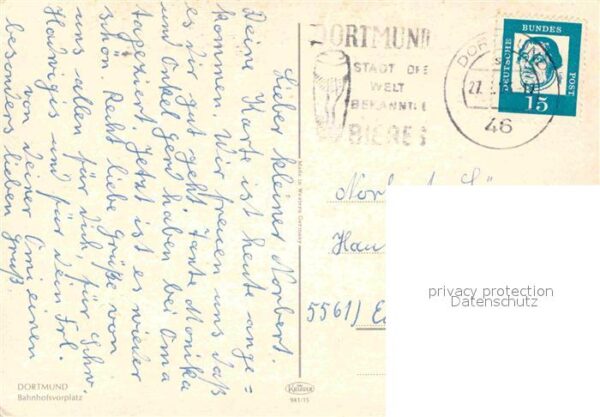 Lieber kleiner Norbert.
Deine Karte ist heute ange=
kommen. Wir freuen uns daß
es dir gut geht. Tante Monika
und Onkel Gerd haben bei Oma
tapeziert. Jetzt ist es wieder
schön. Recht liebe Grüße von
uns allen für dich, für Schw.
Hadwigis und für dein Frl.
von deiner Omi einen
besonders lieben Gruß.
DORTMUND
Bahnhofsvorplatz
Made in Western Germany
Krüger
981/15
DORTMUND
STADT DE
WELT
BEKANNTE
BIERE
DOR
27.
46
DEUTSCHE
BUNDES
POST
15
Norbert
Hau
5561)
privacy protection
Datenschutz